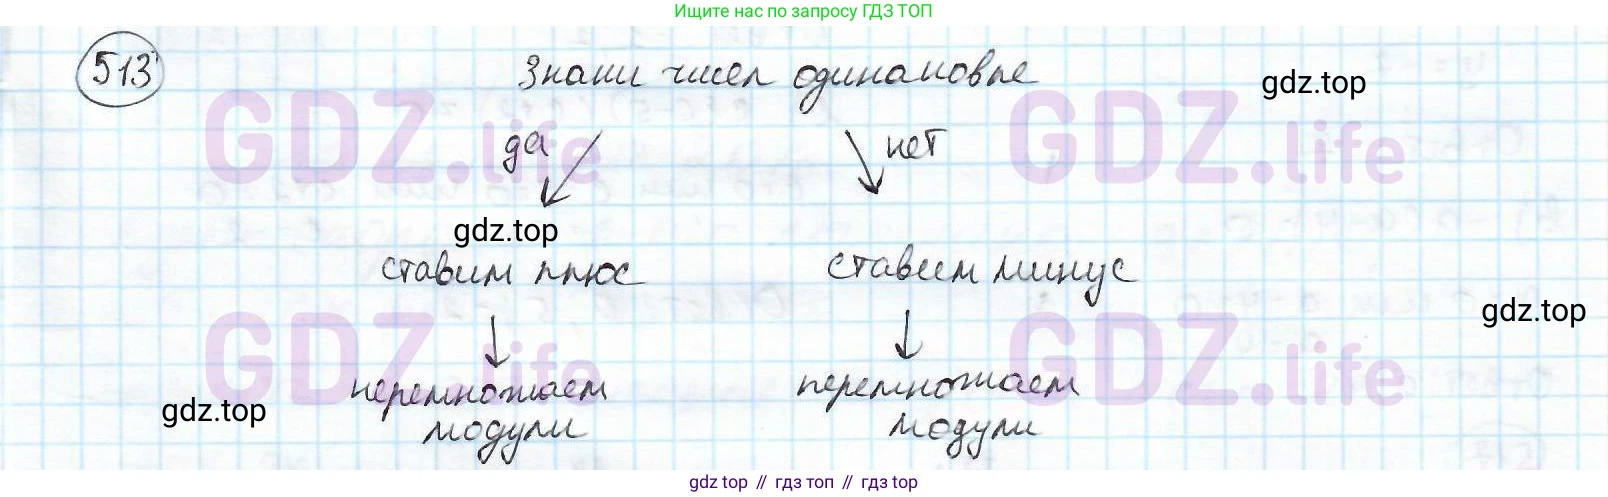 Ищите нас по запросу ГДЗ ТОП
513 Знаки чисел одинаковые gdz.top
GDZ.life GDZ.life
да нет
gdz.top
ставим плюс ставим минус
gdz.top
GDZ.life GDZ.life
перемножаем перемножаем
gdz.top
модули модули
gdz top // гдз топ // гдз top